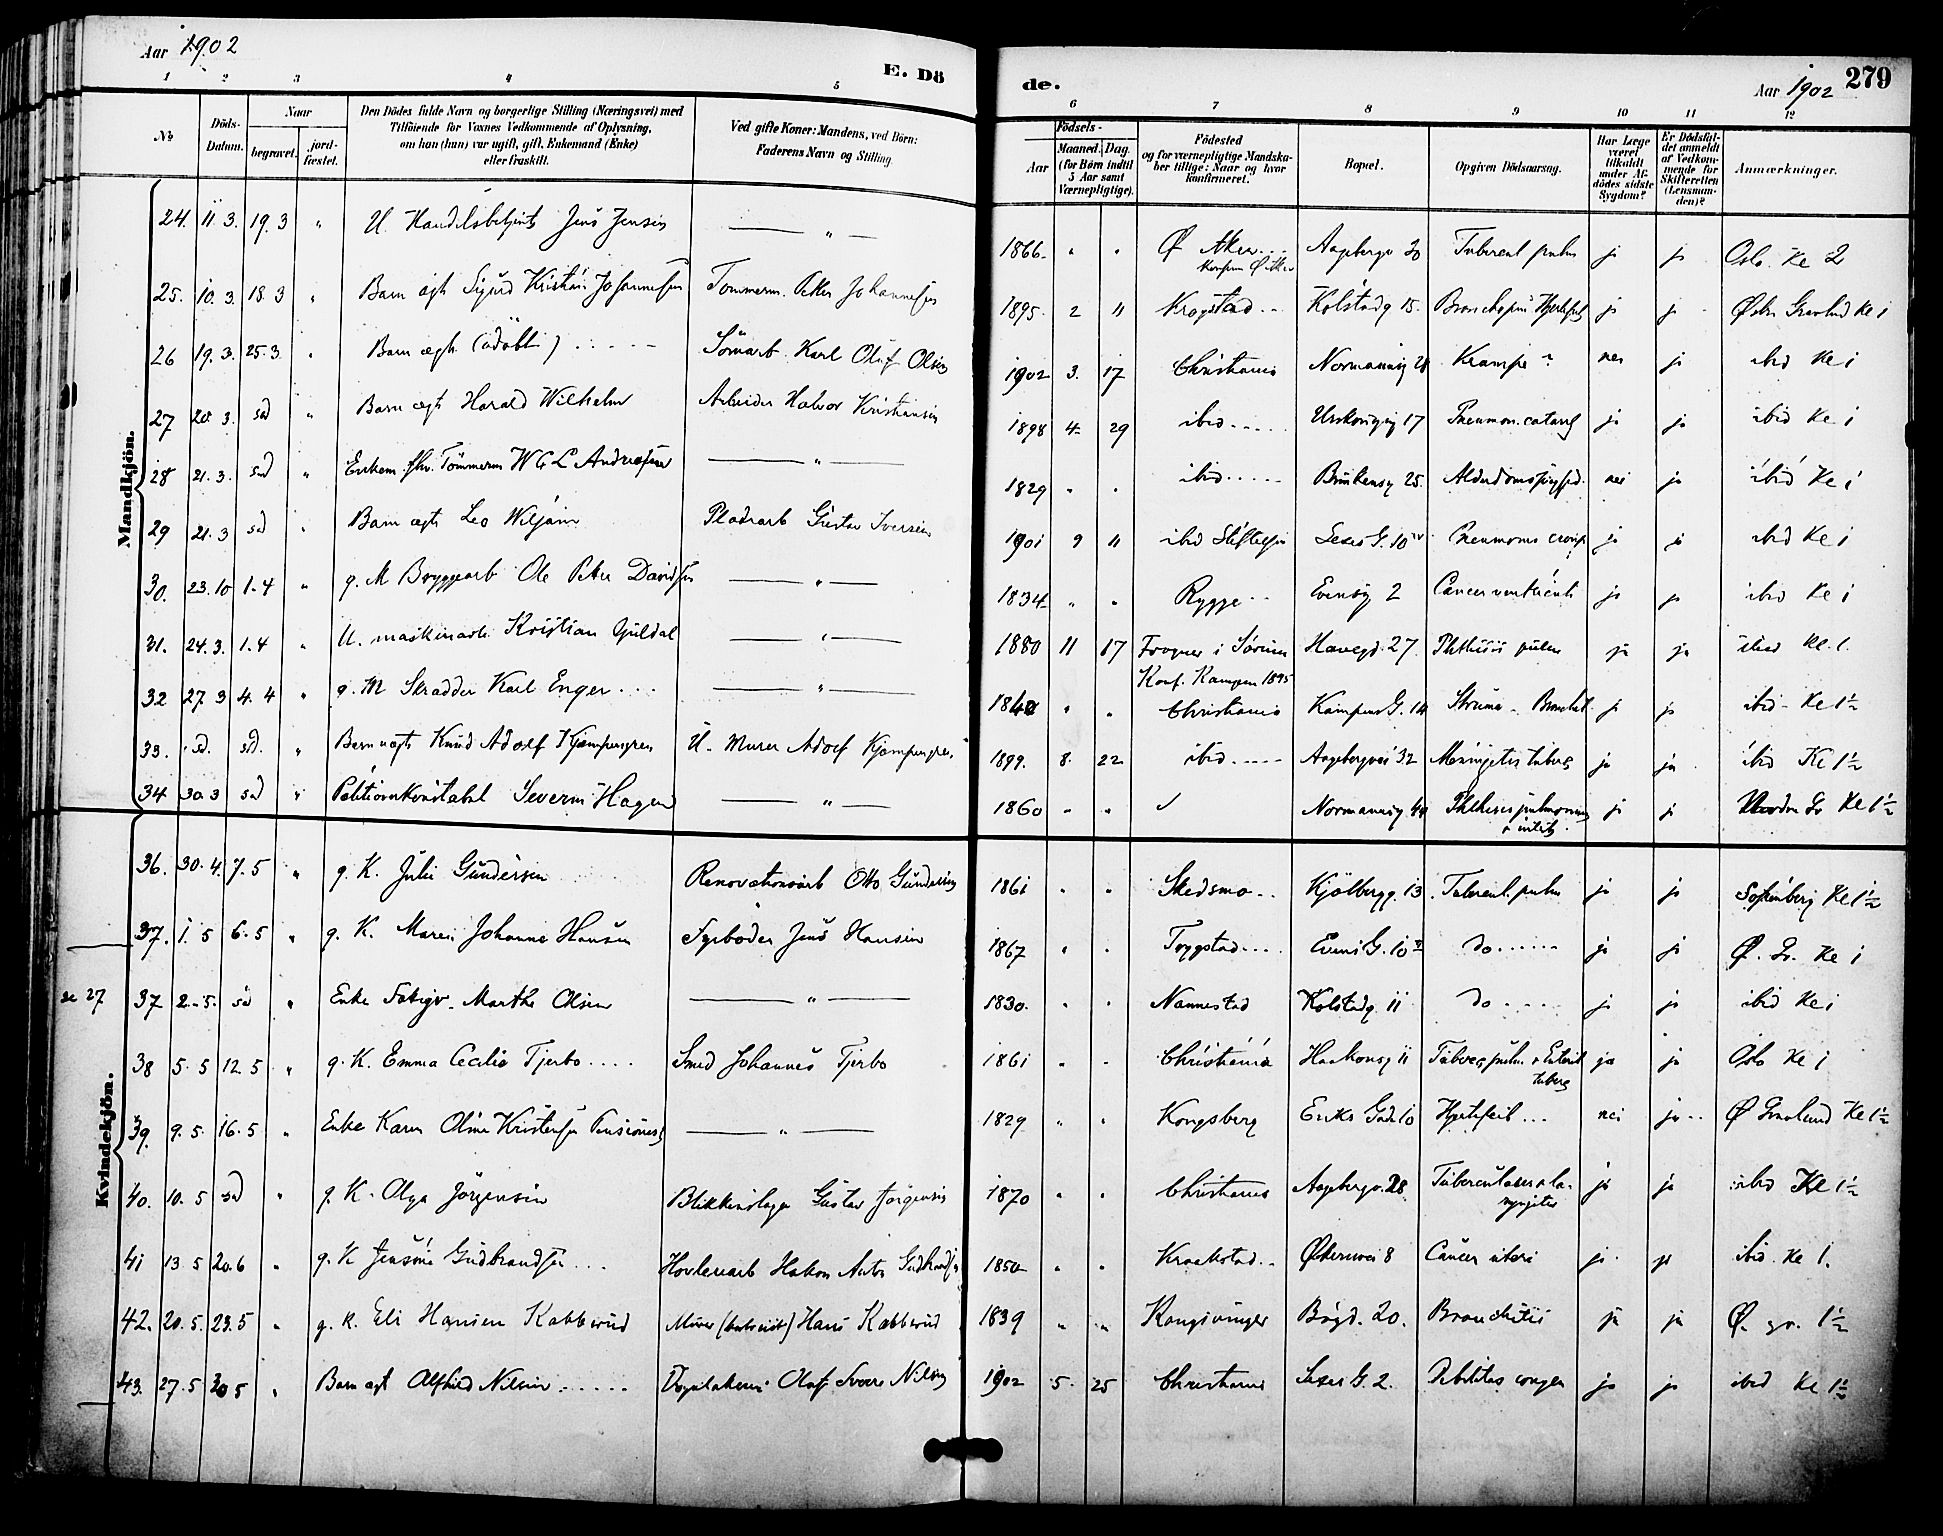 Aar 1902
E. Dö
de.
Aar 1902
279
1 2 3 4 5
6 7 8 9 10 11 12
No
Döds-Datum.
Naar
begravet.
jord-fæstet.
Den Dödes fulde Navn og borgerlige Stilling (Næringsvei) med
Tilföiende for Voxnes Vedkommende af Oplysning,
om han (hun) var ugift, gift, Enkemand (Enke)
eller fraskilt.
Ved gifte Koner: Mandens, ved Börn:
Faderens Navn og Stilling.
Födsels-
Aar
Maaned. Dag.
(for Børn indtil
5 Aar samt
Værnepligtige).
Födested
og for værnepligtige Mandska-
ber tillige: Naar og hvor
konfirmeret.
Bopæl.
Opgiven Dödsaarsag.
Har Læge
været
tilkaldt
under Af-
dödes sidste
Sygdom?
Er Dödsfal-
det anmeldt
af Vedkom-
mende for
Skifteretten
(Lensman-
den)?
Anmærkninger.
Mandkjön.
24. 11 3. 19. 3 " U. Handelsbetjent Jens Jensen — " — 1866 " " Ø Aker Aagebergv 20 Tubercul pulm ja ja Oslo Ke 2
Konfirm Ø Aker
25. 10. 3. 18. 3 " Barn ægt Sigurd Kristian Johannesen Tømmerm. Peter Johannesen 1895 2 11 Krogstad Kolstadg 15. ja ja Østre Gravlund Ke 1
26 19. 3. 25. 3 " Barn ægte (udöbt) Karl Oluf Olsen 1902 3. 17 Christiania Normannsg Krampe ? nei ja ibid Ke 1
27 20. 3. sad " Barn ægte Harald Wilhelm Arbeider Halvor Kristiansen 1898 4 29 ibid 17 Pneumon. catarrh ja ja ibid Ke 1
28 21. 3. sad " Enkem. fhv. Tömmerm W G L Andresen — " — 1829 " " ibid 25. nei ja ibid Ke 1
29 21. 3 sad " Barn ægte Leo Wiljam Pladearb Gustav Iversen 1901 9 11 ibid Stiftelsen G. 10 Pneumoni croup ja ja ibid Ke 1
30. 23. 10 1. 4 " g. M Bryggearb Ole Peter Davidsen — " — 1834 " " Rygge Evensg 2 Cancer ventriculi ja ja ibid Ke 1
31. 24. 3. 1. 4 " U. maskinarb Kristian Guldal — " — 1880 11 17 Frogner i Sørum Havegd. 27. Phthisis pulm ja ja ibid Ke 1.
Konf. Kampen 1895
32 27. 3 4. 4 " g. M Skrædder Karl Enger — " — 1840 " " Christiania Kampens G. 14 Struma - Bronchit. ja ja ibid Ke 1½
33. sd. sd. " Barn ægte Knud Adolf Kjæmpengren U. Murer Adolf Kjæmpengren 1899. 8. 22 ibid Aagebergvei 32 Meningitis tuberc ja ja ibid Ke 1½
34 30. 3 sad " Politikonstabel Severin Hagen — " — 1860 " " Normannsg 44 Phthisis pulmonum ja ja Ke 1½
Kvindekjön.
36. 30. 4. 7. 5 " g. K. Julie Gundersen Renovationsarb Otto Gundersen 1861 " " Skedsmo Kjölbergg. 13. Tubercul. pulm ja ja Sofienberg Ke 1½
37. 1. 5 6. 5 " g. K. Maren Johanne Hansen Fyrböder Jens Hansen 1867 " " Trygstad Evens G. 10 Do ja ja Ø. Gr. Ke 1
se 27 37 2. 5. sad " Enke Marthe Olsen — " — 1830. " " Nannestad Kolstadg. 11 Do ja ja ibid Ke 1
38 5. 5 12. 5 " g. K. Emma Cecilie Tjerbo Smed Johannes Tjerbo 1861 " " Christiania Haakonsg 11 Tuberc pulm & Enterit tuberc ja ja Oslo Ke 1
39. 9. 5. 16. 5 " Enke Karen Oline Kristensen Pensionist — " — 1829 " " Kongsberg Eriks Gade 10 Hjertefeil nei ja Ø Gravlund Ke 1½
40. 10. 5 sad " g. K. Olga Jörgensen Blikkenslager Gustav Jörgensen 1870 " " Christiania Aagebergv. 28. Tuberculosis & laryngitis ja ja ibid Ke 1½
41 13. 5 20. 6 " g. K Jensine Gudbrandsen Hövleriarb Hakon Anton Gudbrandsen 1850 " " Kraakstad Økernvei 8 Cancer uteri ja ja ibid Ke 1.
42. 20. 5. 23. 5 " g. K. Eli Hansen Kabberud Murer Hans Kabberud 1839 " " Kongsvinger Bøgd. 20. Bronchitis ja ja Ø. gr. 1½
43. 27. 5 30 5 " Barn ægt Alfhild Nilsen Olaf Sverre Nilsen 1902 5. 25 Christiania G. 2. Debilitas congen ja ja ibid Ke 1½